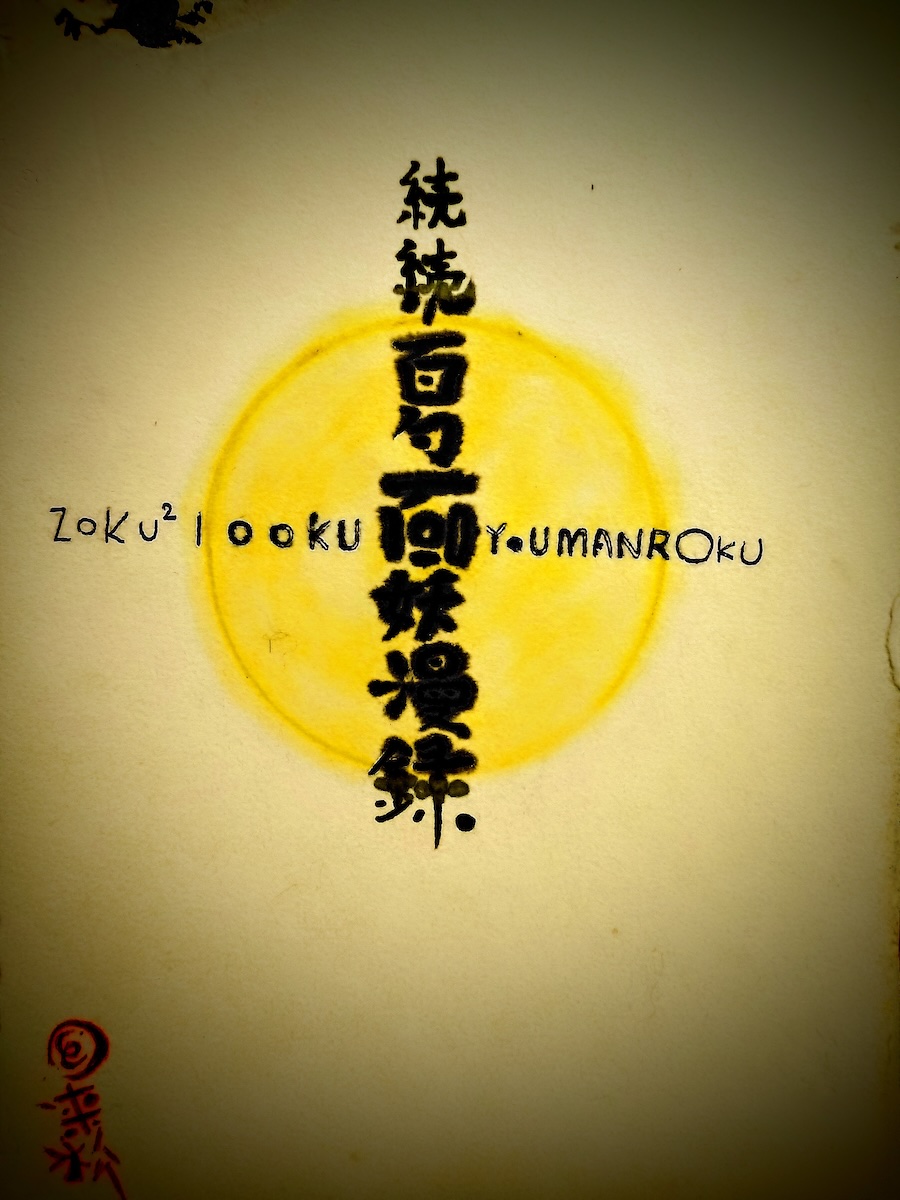 続続百句百妖漫録.
ZOKU² 100KU YOUMANROKU